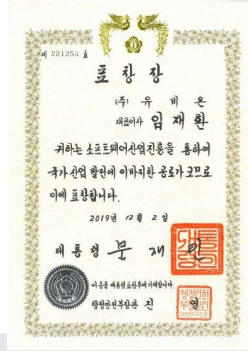 제 221253 호
표 창 장
(주) 유 비 온
대표이사 임 재 환
귀하는 소프트웨어산업진흥을 통하여
국가 산업 발전에 이바지한 공로가 크므로
이에 표창합니다.
2019년 12월 2일
대 통 령 문 재 인
이 증을 대통령표창부에 기재합니다.
행정안전부장관 진 영